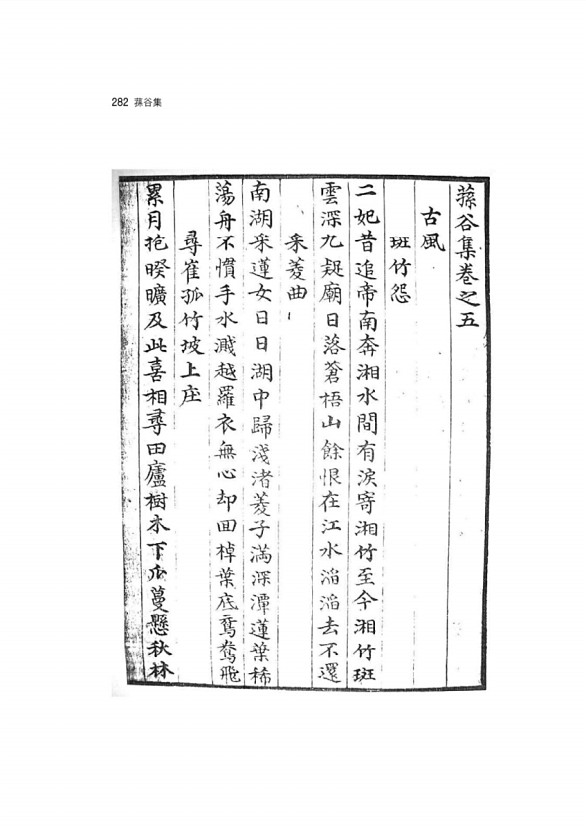 282 蓀谷集
蓀谷集卷之五
古風
斑竹怨
二妃昔追帝南奔湘水間有淚寄湘竹至今湘竹斑
雲深九疑廟日落蒼梧山餘恨在江水滔滔去不還
采菱曲
南湖采蓮女日日湖中歸淺渚菱子滿深潭蓮葉稀
蕩舟不慣手水濺越羅衣無心却回棹葉底鴛鴦飛
尋崔孤竹坡上庄
累月抱暌曠及此喜相尋田廬樹木下瓜蔓懸秋林